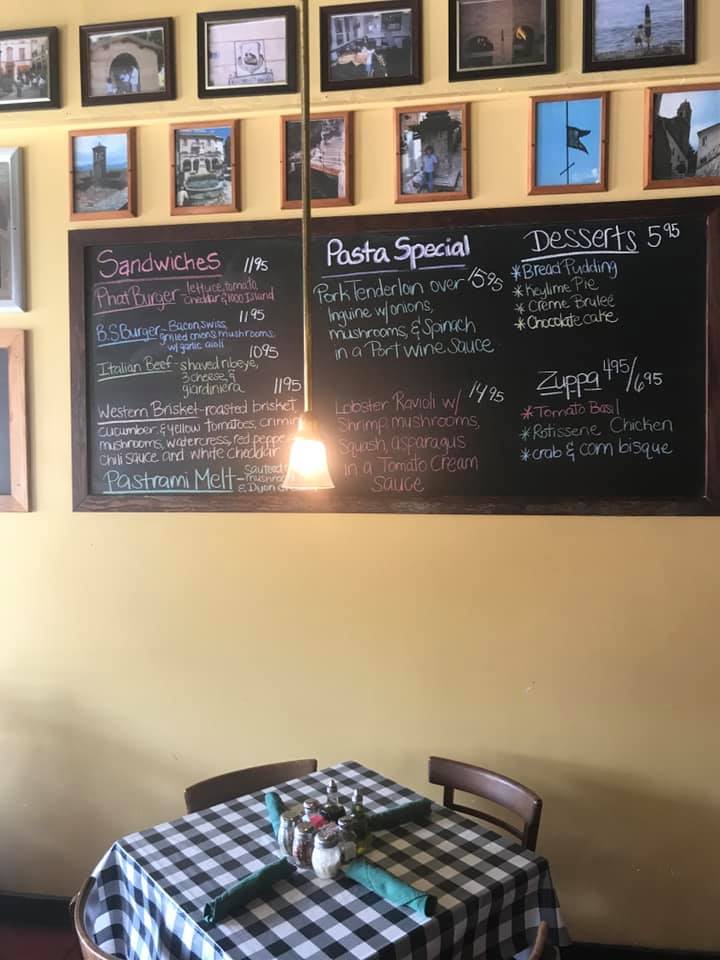 Sandwiches
11.95
Phat Burger - lettuce, tomato,
cheddar & 1000 Island
11.95
B.S Burger - Bacon, Swiss,
grilled onions, mushrooms,
w/ garlic aioli
10.95
Italian Beef - shaved ribeye,
3 cheese &
giardiniera
11.95
Western Brisket - roasted brisket,
cucumber & yellow tomatoes,
mushrooms, watercress, red
chili sauce and white cheddar
Pastrami Melt -
& Dijon
Pasta Special
15.95
Pork Tenderloin over
linguine w/ onions,
mushrooms, & Spinach
in a Port Wine Sauce
14.95
Lobster Ravioli w/
Shrimp, mushrooms,
Squash, asparagus
in a Tomato Cream
Sauce
Desserts 5.95
*Bread Pudding
*Keylime Pie
*Creme Bruleé
*Chocolate cake
Zuppa 4.95/6.95
*Tomato Basil
*Rotisserie Chicken
*crab & corn bisque